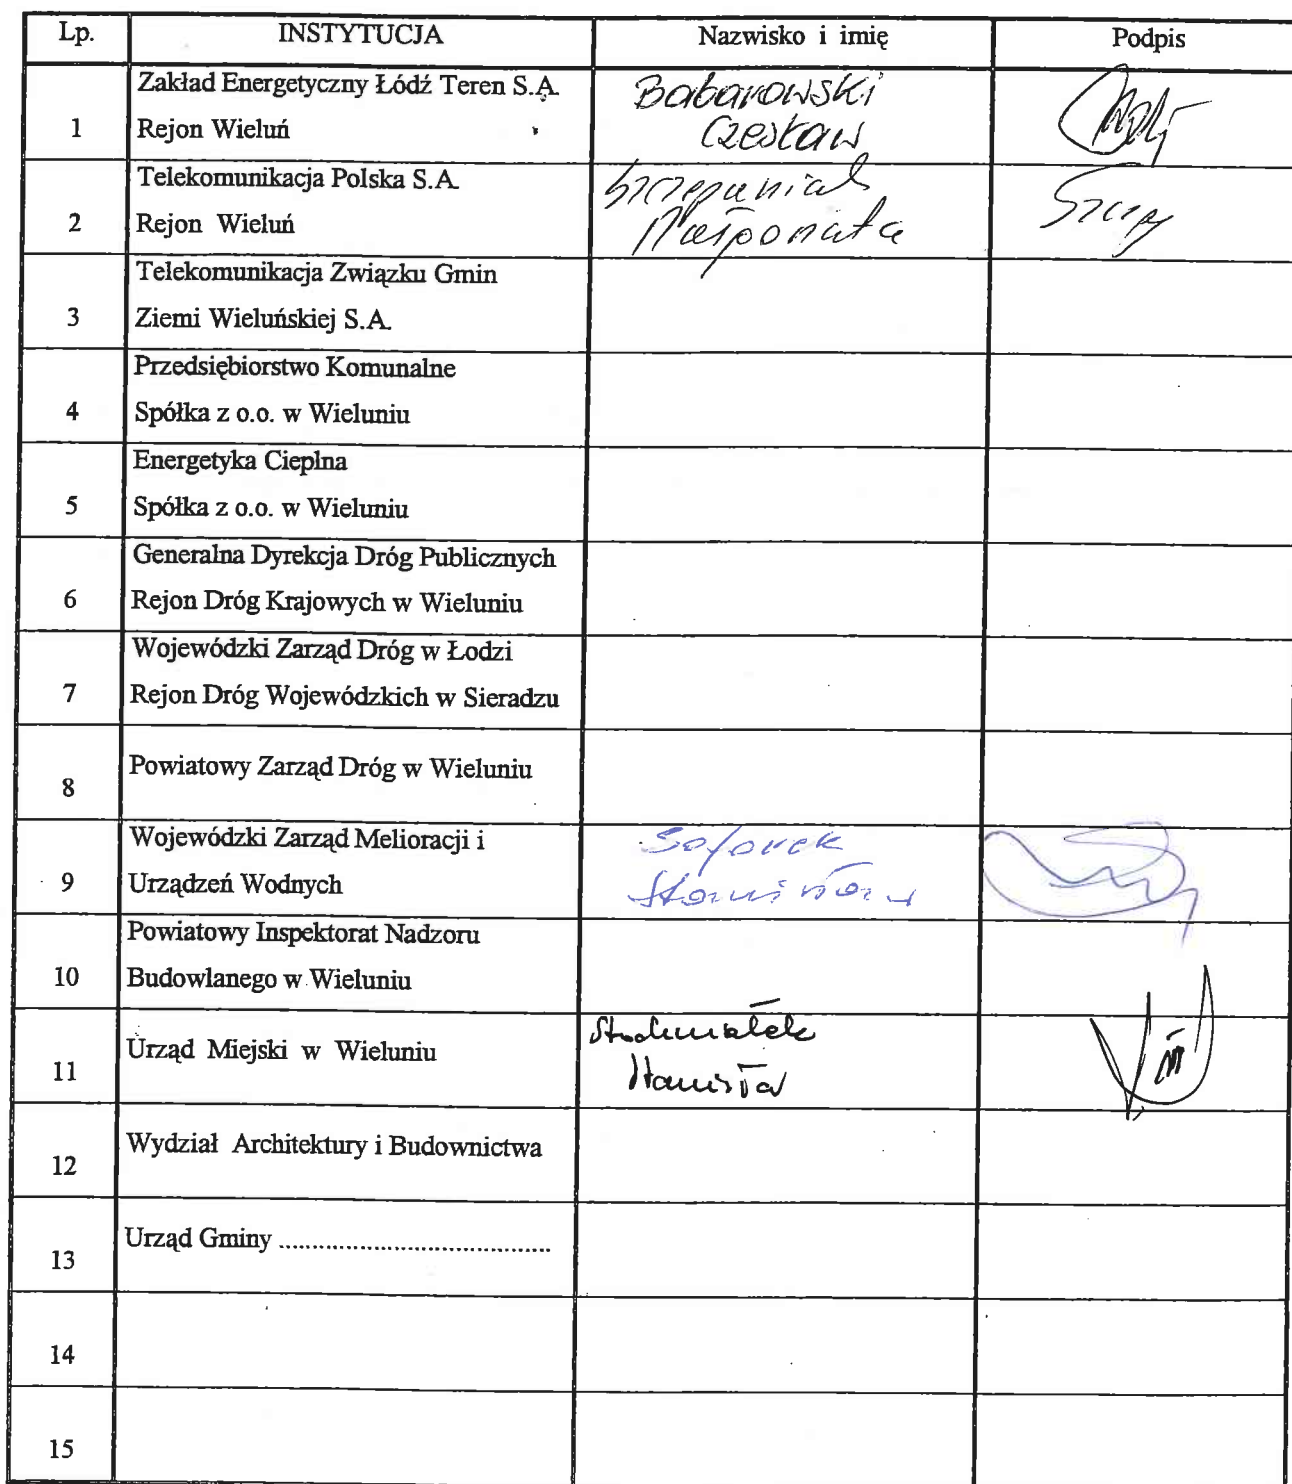 Lp. INSTYTUCJA Nazwisko i imię Podpis
Zakład Energetyczny Łódź Teren S.A. Babarowski
1 Rejon Wieluń Czesław
Telekomunikacja Polska S.A. Szczepaniak
2 Rejon Wieluń Małgorzata
Telekomunikacja Związku Gmin
3 Ziemi Wieluńskiej S.A.
Przedsiębiorstwo Komunalne
4 Spółka z o.o. w Wieluniu
Energetyka Cieplna
5 Spółka z o.o. w Wieluniu
Generalna Dyrekcja Dróg Publicznych
6 Rejon Dróg Krajowych w Wieluniu
Wojewódzki Zarząd Dróg w Łodzi
7 Rejon Dróg Wojewódzkich w Sieradzu
8 Powiatowy Zarząd Dróg w Wieluniu
Wojewódzki Zarząd Melioracji i
9 Urządzeń Wodnych Stanisław
Powiatowy Inspektorat Nadzoru
10 Budowlanego w Wieluniu
11 Urząd Miejski w Wieluniu
12 Wydział Architektury i Budownictwa
13 Urząd Gminy ........................................
14
15